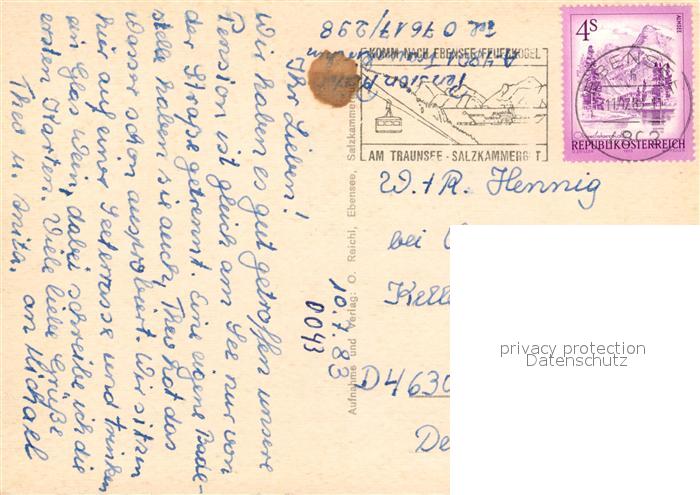 Ihr Lieben!
Wir haben es gut getroffen unsere
Pension ist gleich am See nur von
der Straße getrennt. Eine eigene Bade-
stelle haben sie auch, Theo hat das
Wasser schon ausprobiert. Wir sitzen
hier auf einer Seeterrasse und trinken
ein Glas Wein, dabei schreibe ich die
ersten Karten. Viele liebe Grüße
an Michael
Theo u. Anita.
10.7.83
0043
Aufnahme und Verlag: O. Reichl, Ebensee, Salzkammergut
Pension
A-4801
Tel. 07617/298
KOMM NACH EBENSEE/FEUERKOGEL
AM TRAUNSEE-SALZKAMMERGUT
4S
ALMSEE
REPUBLIK ÖSTERREICH
W. + R. Hennig
bei
Kelle
D4630
De
privacy protection
Datenschutz